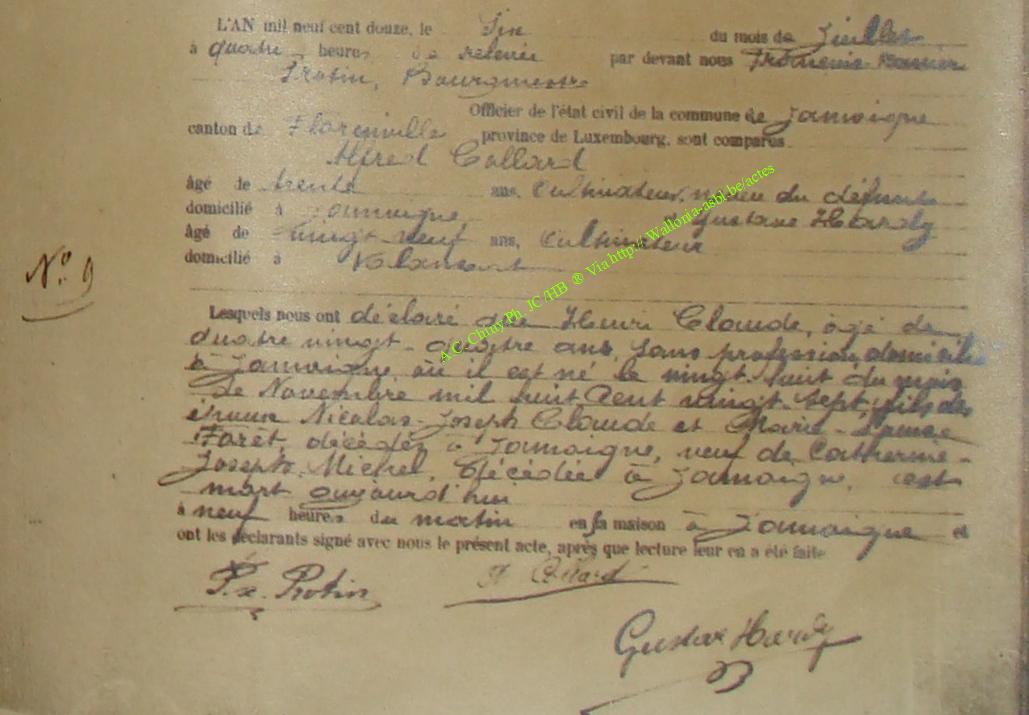 L'AN mil neuf cent douze, le Six du mois de Juillet
à quatre heures de relevée par devant nous
Protin, Bourgmestre
Officier de l'état civil de la commune de Jamoigne
canton de Florenville province de Luxembourg, sont comparus
Alfred Collard
âgé de trente ans, Cultivateur, neveu du défunt
domicilié à Jamoigne Gustave Hardy
âgé de vingt-neuf ans, Cultivateur
domicilié à Valansart
N° 9
Lesquels nous ont déclaré que Henri Claude, âgé de
quatre vingt-quatre ans, sans profession, domicilié
à Jamoigne, où il est né le vingt-huit du mois
de Novembre mil huit cent vingt-sept, fils des
époux Nicolas-Joseph Claude et Marie-
Foret, décédés à Jamoigne, veuf de Catherine-
Josephe Michel, décédée à Jamoigne, est
mort aujourd'hui
à neuf heures du matin en sa maison à Jamoigne et
ont les déclarants signé avec nous le présent acte, après que lecture leur en a été faite
Px. Protin A Collard
Gustave Hardy
A.C. Chiny Ph. JC/HB ® Via http://Wallonia-asbl.be/actes